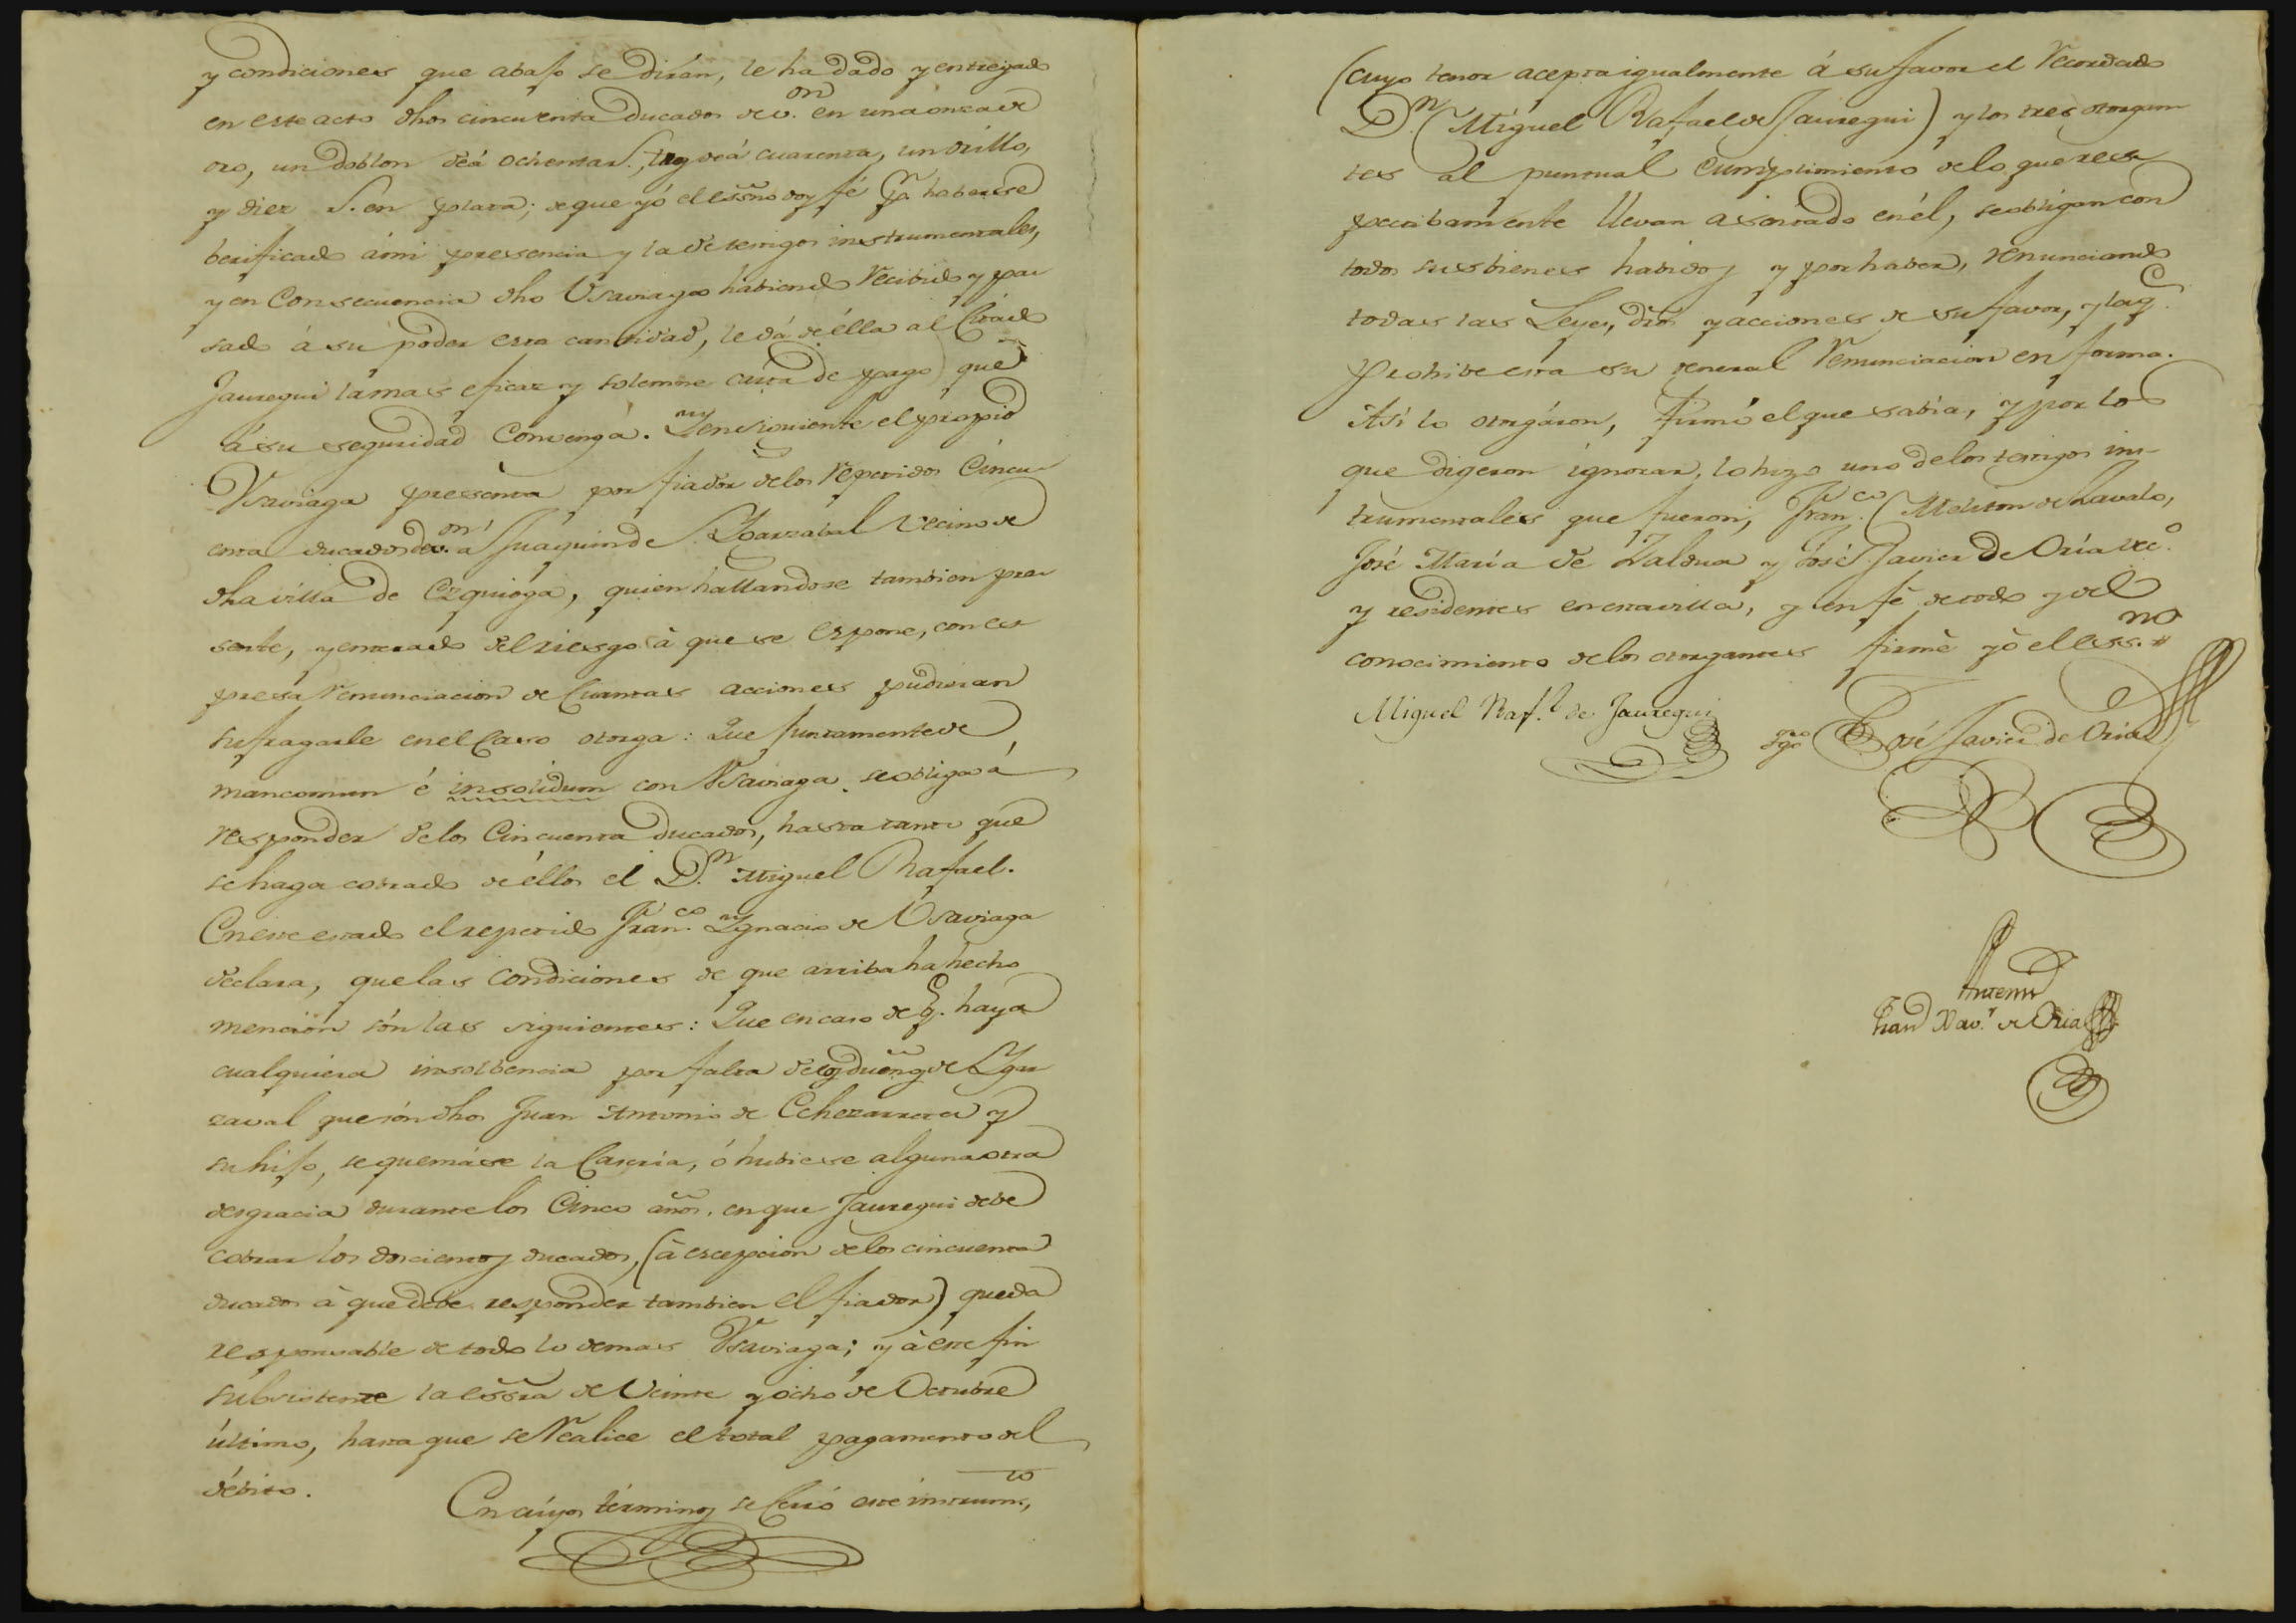 y condiciones que abajo se dirán, le ha dado y entregado
en este acto dhos cincuenta Ducados de v.on en una onza de
oro, un doblon de á ochenta r.s, tres de á cuarenta, un orillo,
y diez r.s en plata; de que yó el essno doy fé p.r haberse
berificado á mi presencia y la de testigos instrumentales,
y en Consecuencia dho Usaviaga habiendo Recibido y pa-
sado á su poder esta cantidad, le dá de élla al Citado
Jauregui la mas eficaz y solemne carta de pago que
á su seguridad Convenga. Y en siguiente el propio
Usaviaga presenta por fiador de los Repetidos Cincu-
enta ducados de v.on á Juaquin de Ygarzabal vecino de
dha villa de Ezquioga, quien hallandose tambien pre-
sente, y enterado del riesgo à que se espone, con es-
presa Renunciacion de Cuantas acciones pudieran
sufragarle en el Caso otorga: Que juntamente de
mancomun é insolidum con Usaviaga se obliga á
responder de los Cincuenta Ducados, hasta tanto que
se haga cobrado de éllos el D.n Miguel Rafael.
En este estado el repetido Fran.co Ygnacio de Usaviaga
declara, que las Condiciones de que arriba ha hecho
mencion són las siguientes: Que en caso de q.e haya
cualquiera insolbencia por falta de los dueños de Ygar-
zaval que són dhos Juan Antonio de Echezarreta y
su hijo, se quemáse la Caseria, ó hubiese alguna otra
desgracia durante los Cinco años, en que Jauregui debe
cobrar los doscientos ducados, (à escepcion de los cincuenta
ducados à que debe responder tambien el fiador) queda
responsable de todo lo demas Usaviaga; y à este fin
subsistente la essra de Veinte y ocho de Octubre
último, hasta que se Realice el total pagamento del
débito.
En cúyos términos se Cerró este instrum.to,
(cuyo tenor acepta igualmente á su favor el Recordado
D.n Miguel Rafael de Jauregui) y los tres otorgan-
tes al puntual cumplimiento de lo que res-
pectibamente llevan asentado en él, se obligan con
todos sus bienes habidos y por haber, renunciando
todas las Leyes, dros y acciones de su favor, y la q.e
prohibe esta su general Renunciacion en forma.
Asi lo otorgáron, firmó el que sabia, y por los
que digeron ignorar, lo hizo uno de los testigos ins-
trumentales que fueron, Fran.co Meliton de Lavalo,
José María de Zaldua y José Javier de Oría vec.os
y residentes en esta villa, y en fé de todo y del
conocimiento de los otorgantes firmè yò el ess.no
Miguel Raf.l de Jauregui
tgo José Javier de Oria
Antemi
Fran.co Xav.r de Oria